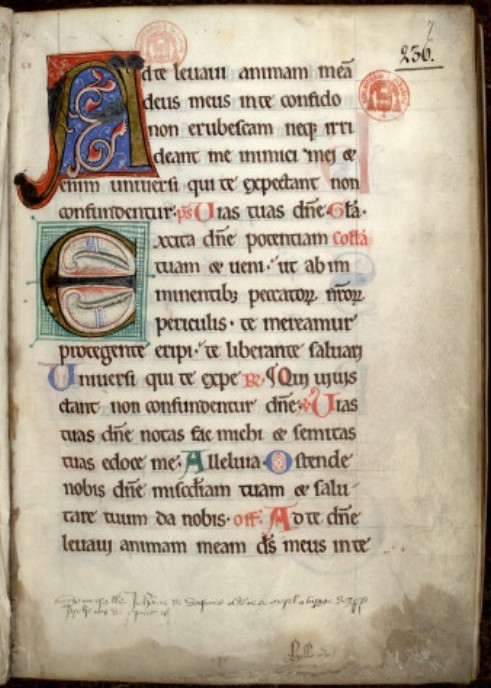 236.
Ad te levavi animam meā
deus meus in te confido
non erubescam neq; irri
deant me inimici mei &
enim universi qui te expectant non
confundentur. ps Uias tuas dn̄e. Gła.
Excita dn̄e potentiam collā
tuam & veni. ut ab im
minentib; peccatoꝝ nr̄oꝝ
periculis. te mereamur
protegente eripi. te liberante salvari
Universi qui te expe ℟. ¶Qui
ctant non confundentur dn̄e. Uias
tuas dn̄e notas fac michi & semitas
tuas edoce me. Alleluia. Ostende
nobis dn̄e misc̄diam tuam & salu
tare tuum da nobis. off. Ad te dn̄e
levavi animam meam ds̄ meus in te